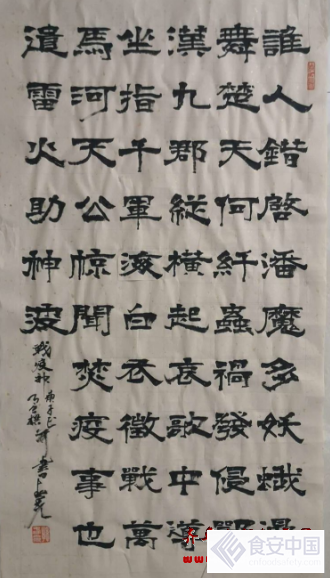 誰人錯啓潘魔多妖蛾漫
舞楚天何纤蟲禍發侵鄂
漢九郡縱橫起哀歌中導
坐指千軍白衣徵戰萬
馬河天公惊聞焚疫事也
遣雷火助神波
戰疫 庚子
食安中国